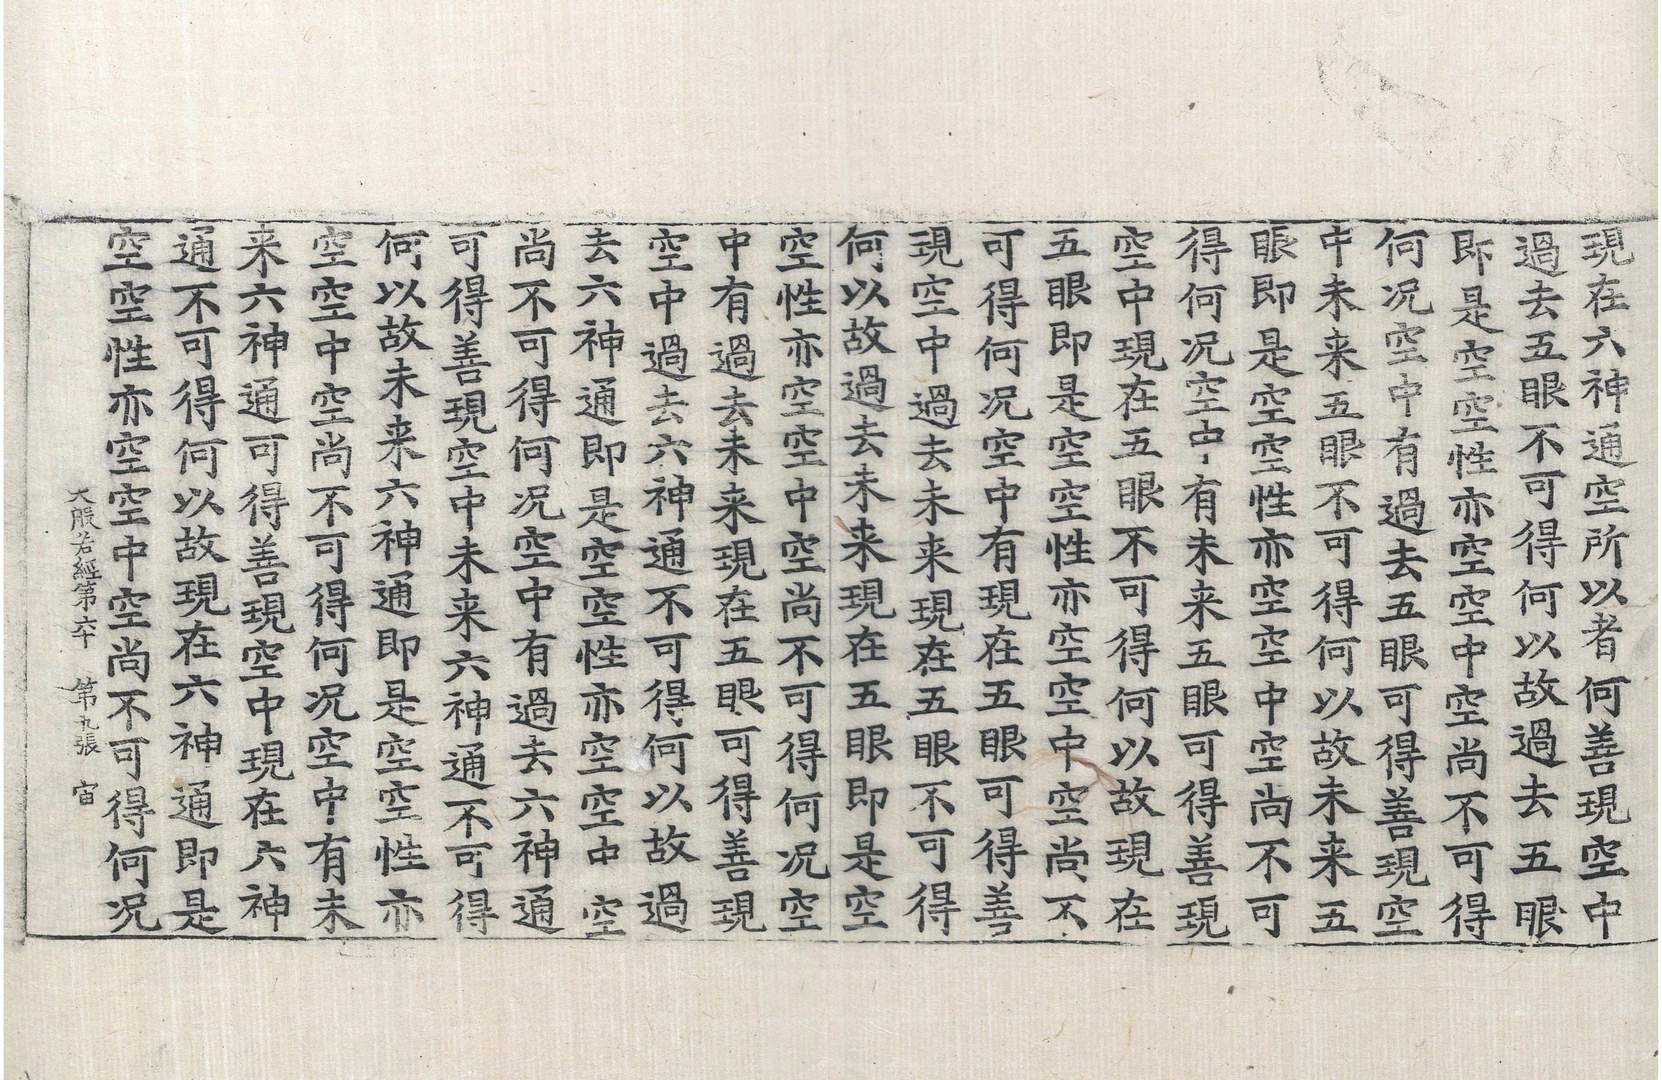 現在六神通空所以者何善現空中
過去五眼不可得何以故過去五眼
即是空空性亦空空中空尚不可得
何况空中有過去五眼可得善現空
中未来五眼不可得何以故未来五
眼即是空空性亦空空中空尚不可
得何况空中有未来五眼可得善現
空中現在五眼不可得何以故現在
五眼即是空空性亦空空中空尚不
可得何况空中有現在五眼可得善
現空中過去未来現在五眼不可得
何以故過去未来現在五眼即是空
空性亦空空中空尚不可得何况空
中有過去未来現在五眼可得善現
空中過去六神通不可得何以故過
去六神通即是空空性亦空空中空
尚不可得何况空中有過去六神通
可得善現空中未来六神通不可得
何以故未来六神通即是空空性亦
空空中空尚不可得何况空中有未
来六神通可得善現空中現在六神
通不可得何以故現在六神通即是
空空性亦空空中空尚不可得何况
大般若經第六十 第九張 宙